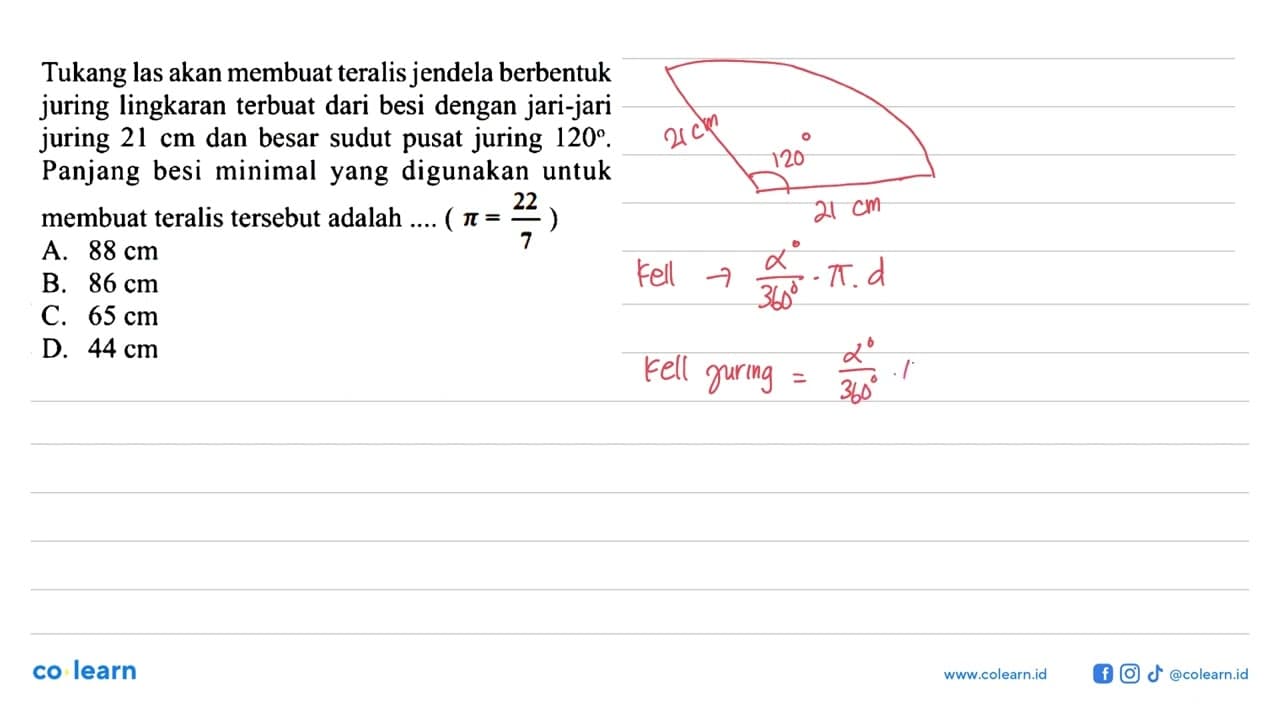 Tukang las akan membuat teralis jendela berbentuk
juring lingkaran terbuat dari besi dengan jari-jari
juring 21 cm dan besar sudut pusat juring 120°.
Panjang besi minimal yang digunakan untuk
membuat teralis tersebut adalah .... ( π = 22/7 )
A. 88 cm
B. 86 cm
C. 65 cm
D. 44 cm
21 cm
120°
21 cm
Kell → α°/360° · π. d
Kell juring = α°/360° .
co learn
www.colearn.id
@colearn.id